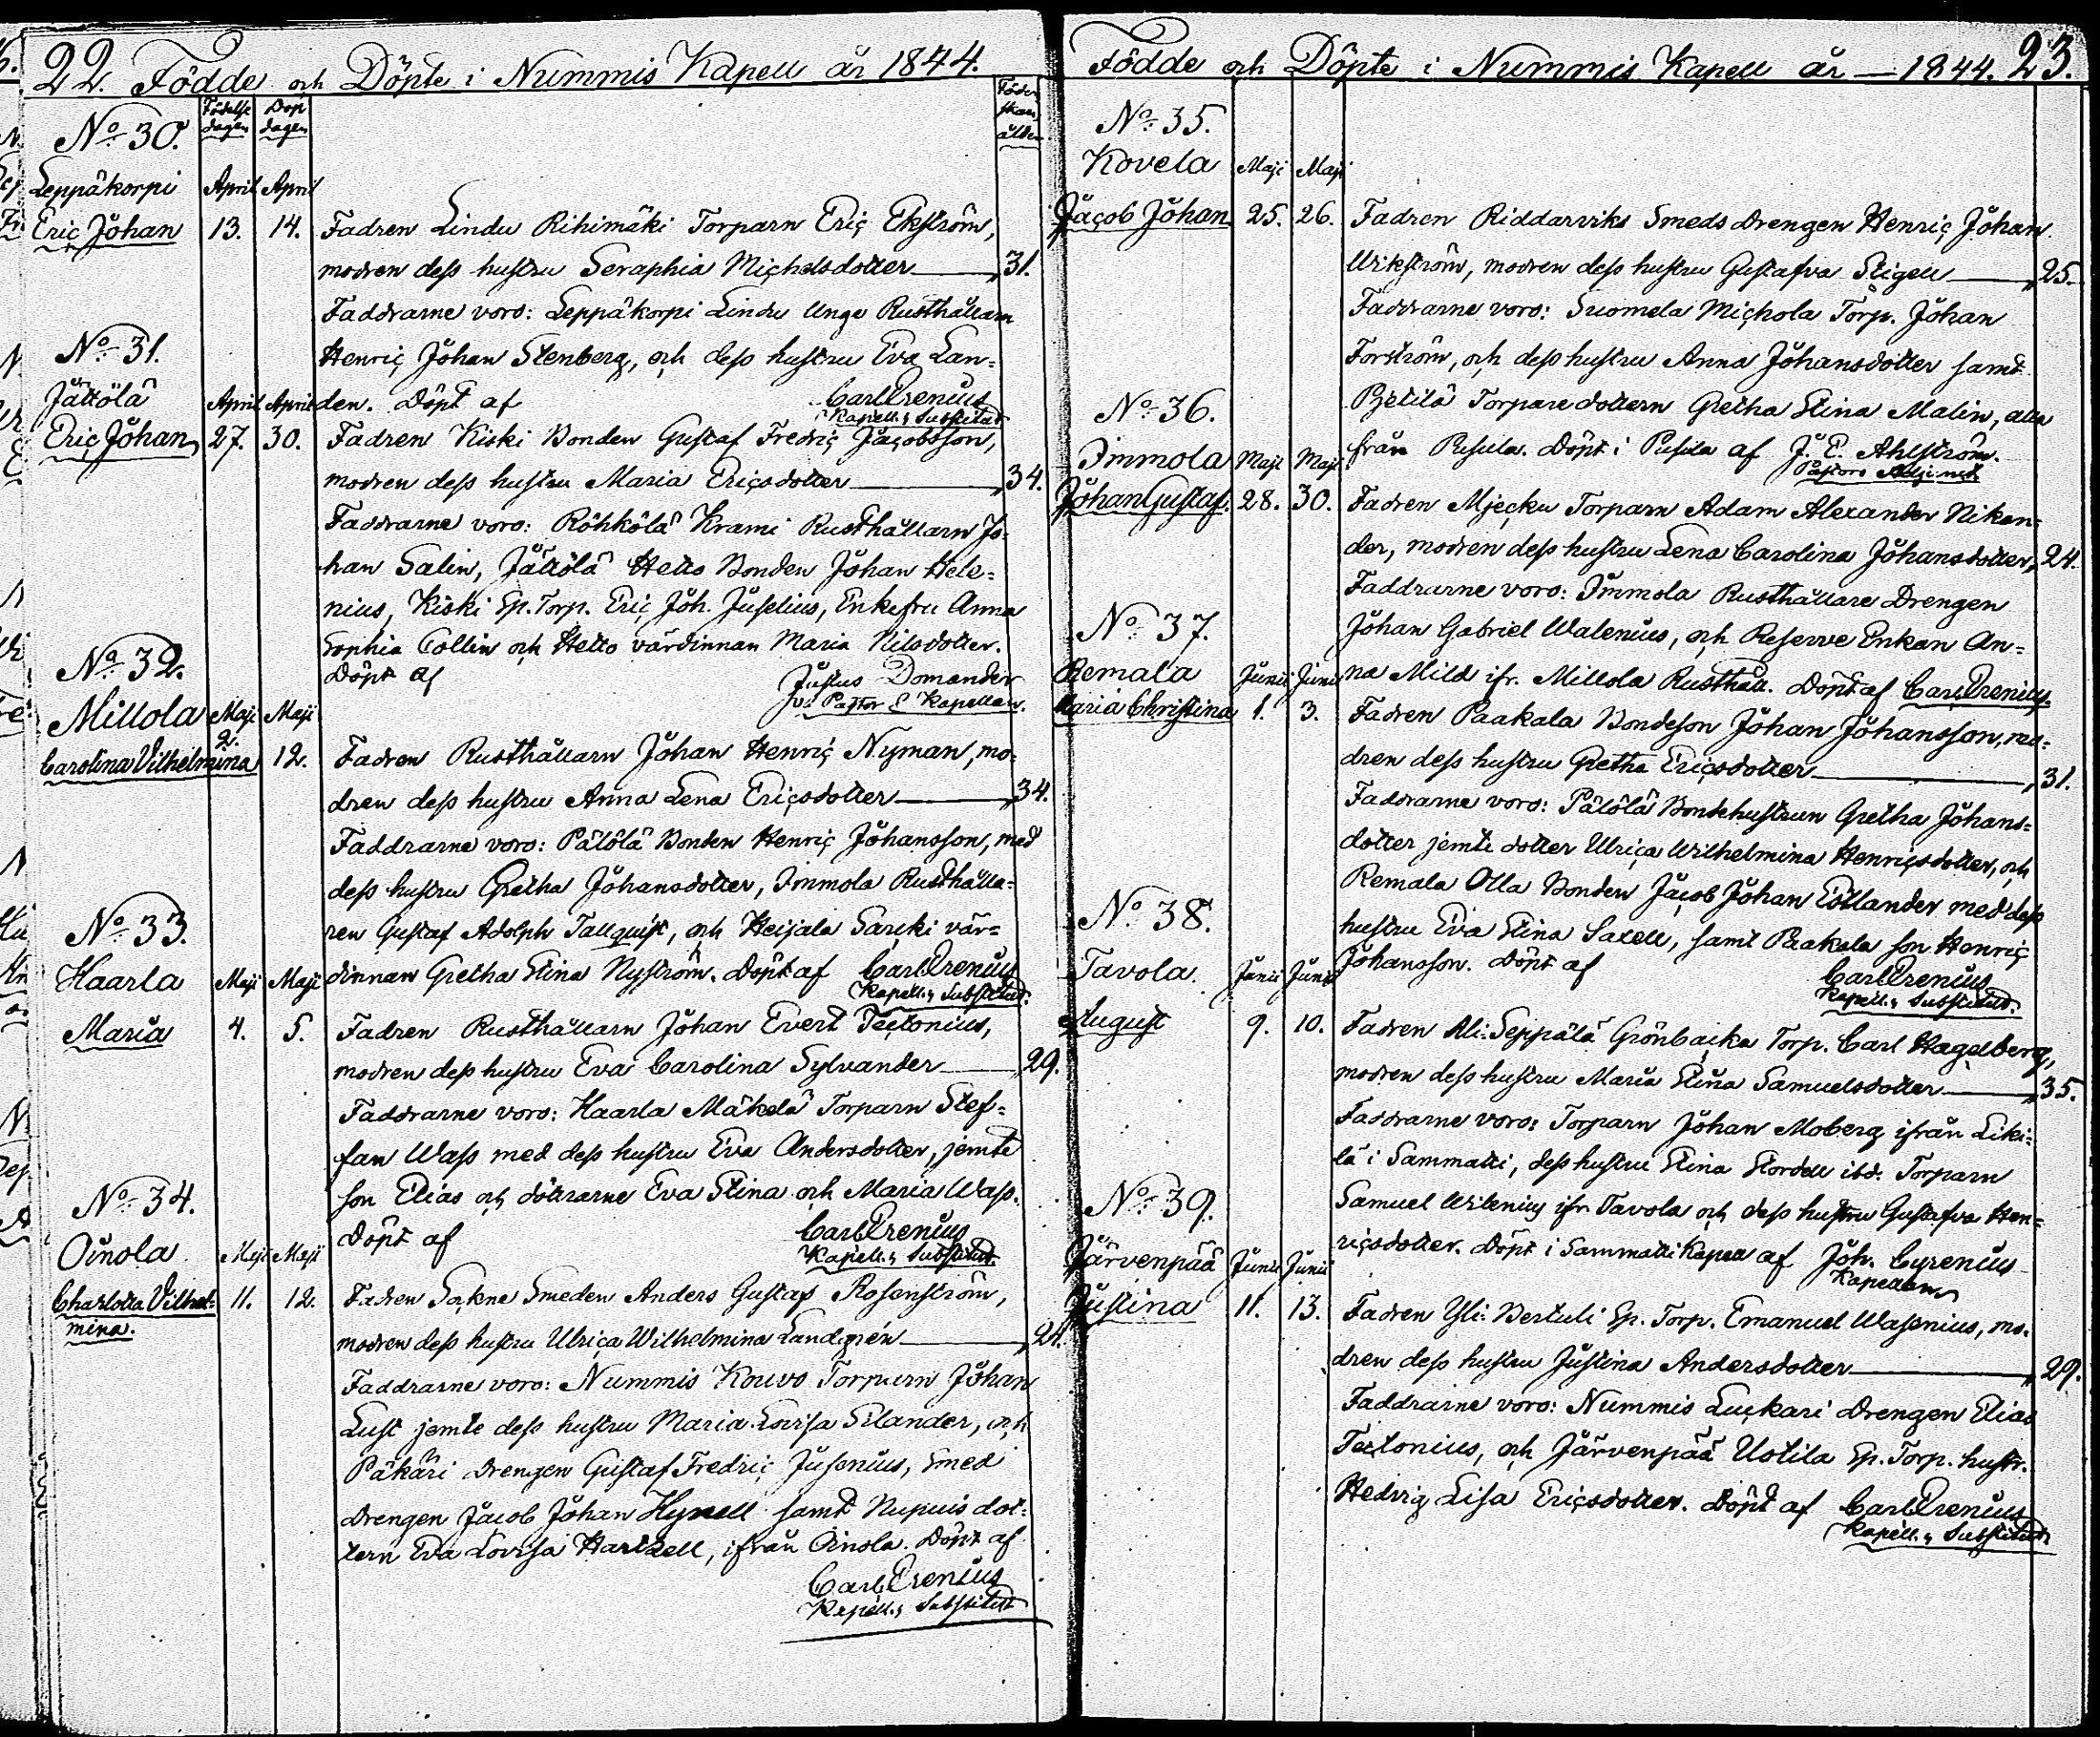 22. Födde och Döpte i Nummis Kapell år 1844.
Födelse dagen
Dop dagen
Föder skans ålder
No 30.
Leppäkorpi April April
Eric Johan 13. 14. Fadren Lindu Rihimäki Torparn Eric Ekström,
modren dess hustru Seraphia Michelsdotter 31.
Faddrarne voro: Leppäkorpi Lindu Unge Rusthållarn
No 31. Henric Johan Stenberg, och dess hustru Eva Lan-
Jättölä April April den. Döpt af Carl Irenius
Kapell.s Substitut
Eric Johan 27. 30. Fadren Kiski Bonden Gustaf Fredric Jacobsson,
modren dess hustru Maria Ericsdotter 34.
Faddrarne voro: Röhkölä Krami Rusthållarn Jo-
han Salin, Jättölä Hetto Bonden Johan Hele-
nius, Kiski Sp. Torp. Eric Joh. Juselius, Enkefru Anna
Sophia Collin och Hetto värdinnan Maria Nilsdotter.
No 32. Döpt af Justus Domander
V. Pastor & Kapellan.
Millola Maji Maji
Carolina Vilhelmina 2. 12. Fadren Rusthållarn Johan Henric Nyman, mo-
dren dess hustru Anna Lena Ericsdotter 34.
Faddrarne voro: Pälölä Bonden Henric Johansson, med
dess hustru Gretha Johansdotter, Immola Rusthålla-
No 33. ren Gustaf Adolph Tallquist, och Heijala Sarcki vär-
Haarla Maji Maji dinnan Gretha Stina Nyström. Döpt af Carl Irenius
Kapell.s Substitut.
Maria 4. 5. Fadren Rusthållarn Johan Evert Tectonius,
modren dess hustru Eva Carolina Sylvander 29.
Faddrarne voro: Haarla Mäkelä Torparn Stef-
fan Wass med dess hustru Eva Andersdotter, jemte
No 34. son Elias och döttrarne Eva Stina och Maria Wass.
Oinola Maji Maji Döpt af Carl Irenius
Kapell.s Substitut.
Charlotta Vilhel- 11. 12. Fadren Sokne Smeden Anders Gustaf Rosenström,
mina. modren dess hustru Ulrica Wilhelmina Landgrén 24.
Faddrarne voro: Nummis Kouvo Torparn Johan
Lust jemte dess hustru Maria Lovisa Silander, och
Päkäri Drengen Gustaf Fredric Jusenius, Smed
Drengen Jacob Johan Hynell samt Nupuis dot-
tern Eva Lovisa Hartzell, ifrån Oinola. Döpt af
Carl Irenius
Kapell.s Substitut
Födde och Döpte i Nummis Kapell år 1844. 23.
No 35.
Kovela Maji Maji
Jacob Johan 25. 26. Fadren Riddarviks Smeds Drengen Henric Johan
Wikström, modren dess hustru Gustafva Stigell 25.
Faddrarne voro: Suomela Michola Torp. Johan
Forström, och dess hustru Anna Johansdotter samt
No 36. Pjetilä Torpare dottern Gretha Stina Malin, alla
Immola Maji Maji från Pusula. Döpt i Pusula af J. E. Ahlström.
Pastors Adjunct
Johan Gustaf. 28. 30. Fadren Mjecku Torparn Adam Alexander Nikan-
der, modren dess hustru Lena Carolina Johansdotter, 24.
Faddrarne voro: Immola Rusthållare Drengen
No 37. Johan Gabriel Walenius, och Reserve Enkan An-
Remala Junii Junii na Mild ifr. Millola Rusthåll. Döpt af Carl Irenius.
Maria Christina 1. 3. Fadren Paakala Bondeson Johan Johansson, mo-
dren dess hustru Gretha Ericsdotter 31.
Faddrarne voro: Pälölä Bondehustrun Gretha Johans-
dotter jemte dotter Ulrica Wilhelmina Henricsdotter, och
Remala Olla Bonden Jacob Johan Estlander med dess
No 38. hustru Eva Stina Saxell, samt Paakala son Henric
Tavola. Junii Junii Johansson. Döpt af Carl Irenius
Kapell.s Substitut.
August 9. 10. Fadren Ali-Seppälä Grönbacka Torp. Carl Hagelberg,
modren dess hustru Maria Stina Samuelsdotter 35.
Faddrarne voro: Torparn Johan Moberg ifrån Liki-
lä i Sammatti, dess hustru Stina Stordell ibd. Torparn
No 39. Samuel Wilenius ifr. Tavola och dess hustru Gustafva Hen-
Järvenpää Junii Junii ricsdotter. Döpt i Sammatti Kapell af Joh. Cyrenius
Kapellan
Justina 11. 13. Fadren Yli-Bertuli Sp. Torp. Emanuel Wasenius, mo-
dren dess hustru Justina Andersdotter 29.
Faddrarne voro: Nummis Luckari Drengen Elias
Tectonius, och Järvenpää Uotila Sp. Torp. hustr.
Hedvig Lisa Ericsdotter. Döpt af Carl Irenius
Kapell.s Substitut.